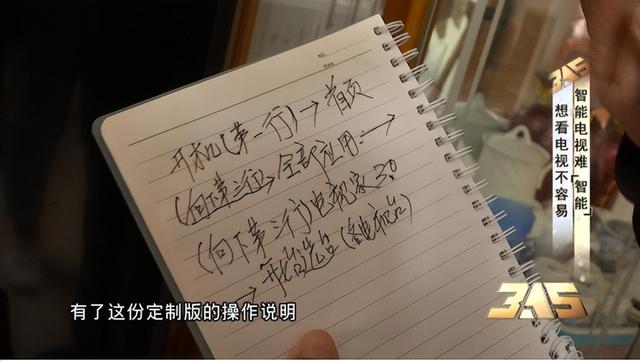 开机(第一行)→首页
(向下第三行)→全部应用→
(向下第三行)电视家3.0
→开始选台(各电视台)
315
智能电视难“智能”
想看电视不容易
315
有了这份定制版的操作说明